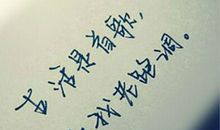 生活是首歌，
我老跑调。